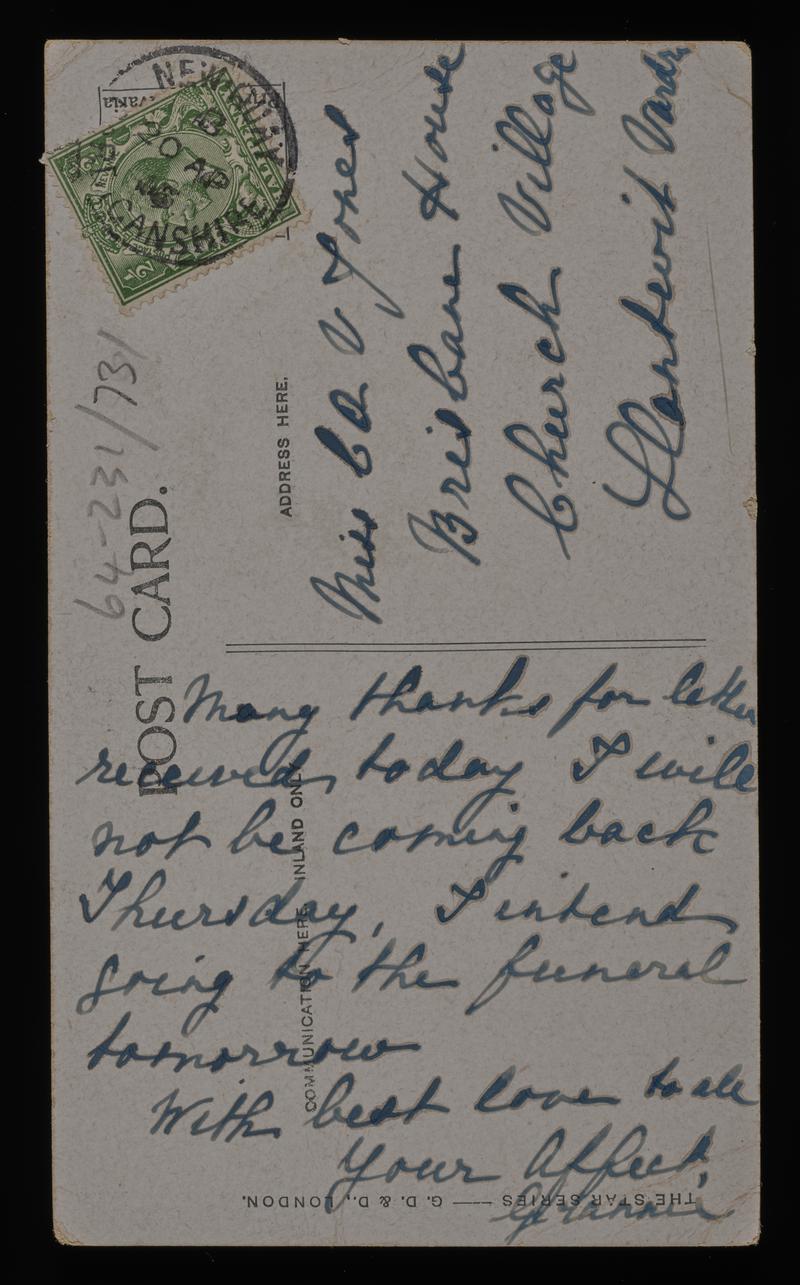 POST CARD.
64-231/731
NEW QUAY
CARDIGANSHIRE
ADDRESS HERE.
Miss C A V Jones
Brisbane House
Church Village
Llantwit Vardre
COMMUNICATION HERE. INLAND ONLY
Many thanks for letter
received today I will
not be coming back
Thursday, I intend
going to the funeral
tomorrow
With best love to all
Your Affect,
Grannie
THE STAR SERIES — G. D. & D., LONDON.